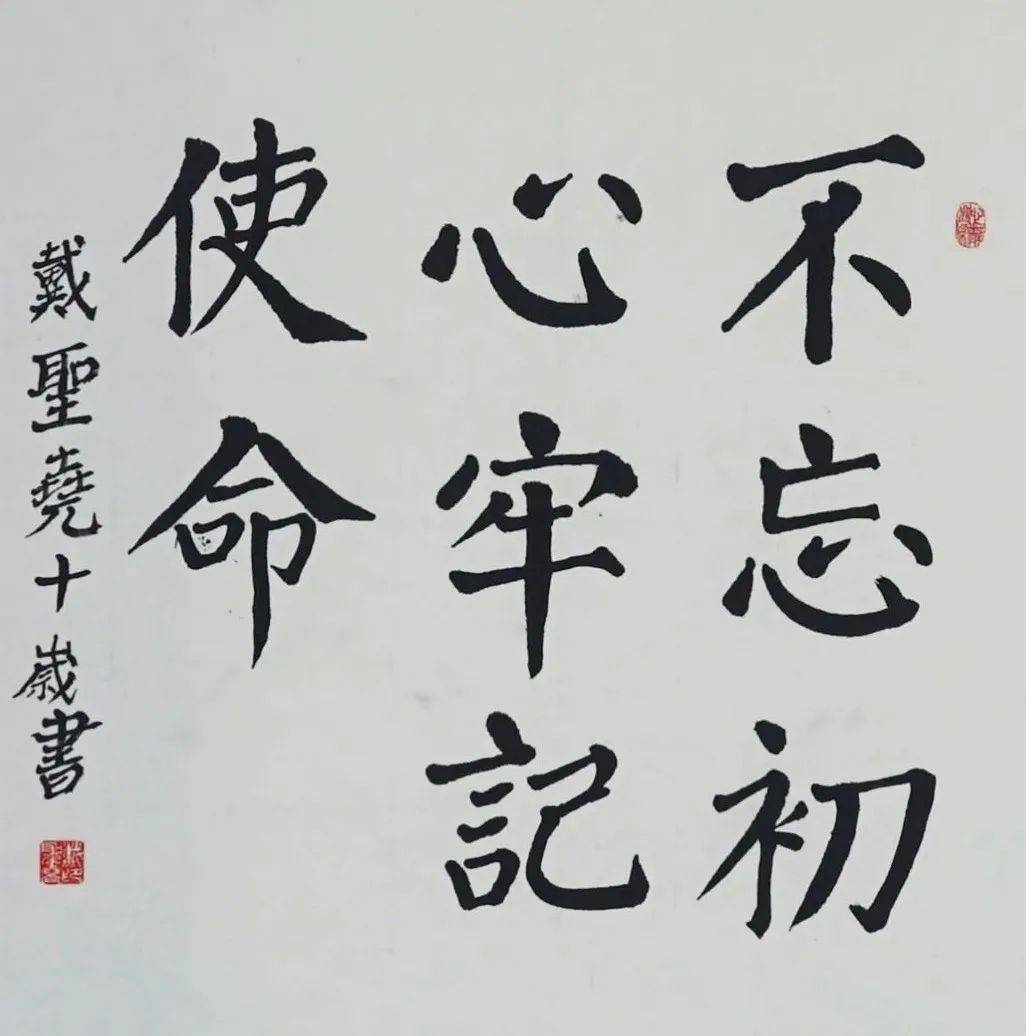 不忘初
心牢記
使命
戴聖堯十歲書